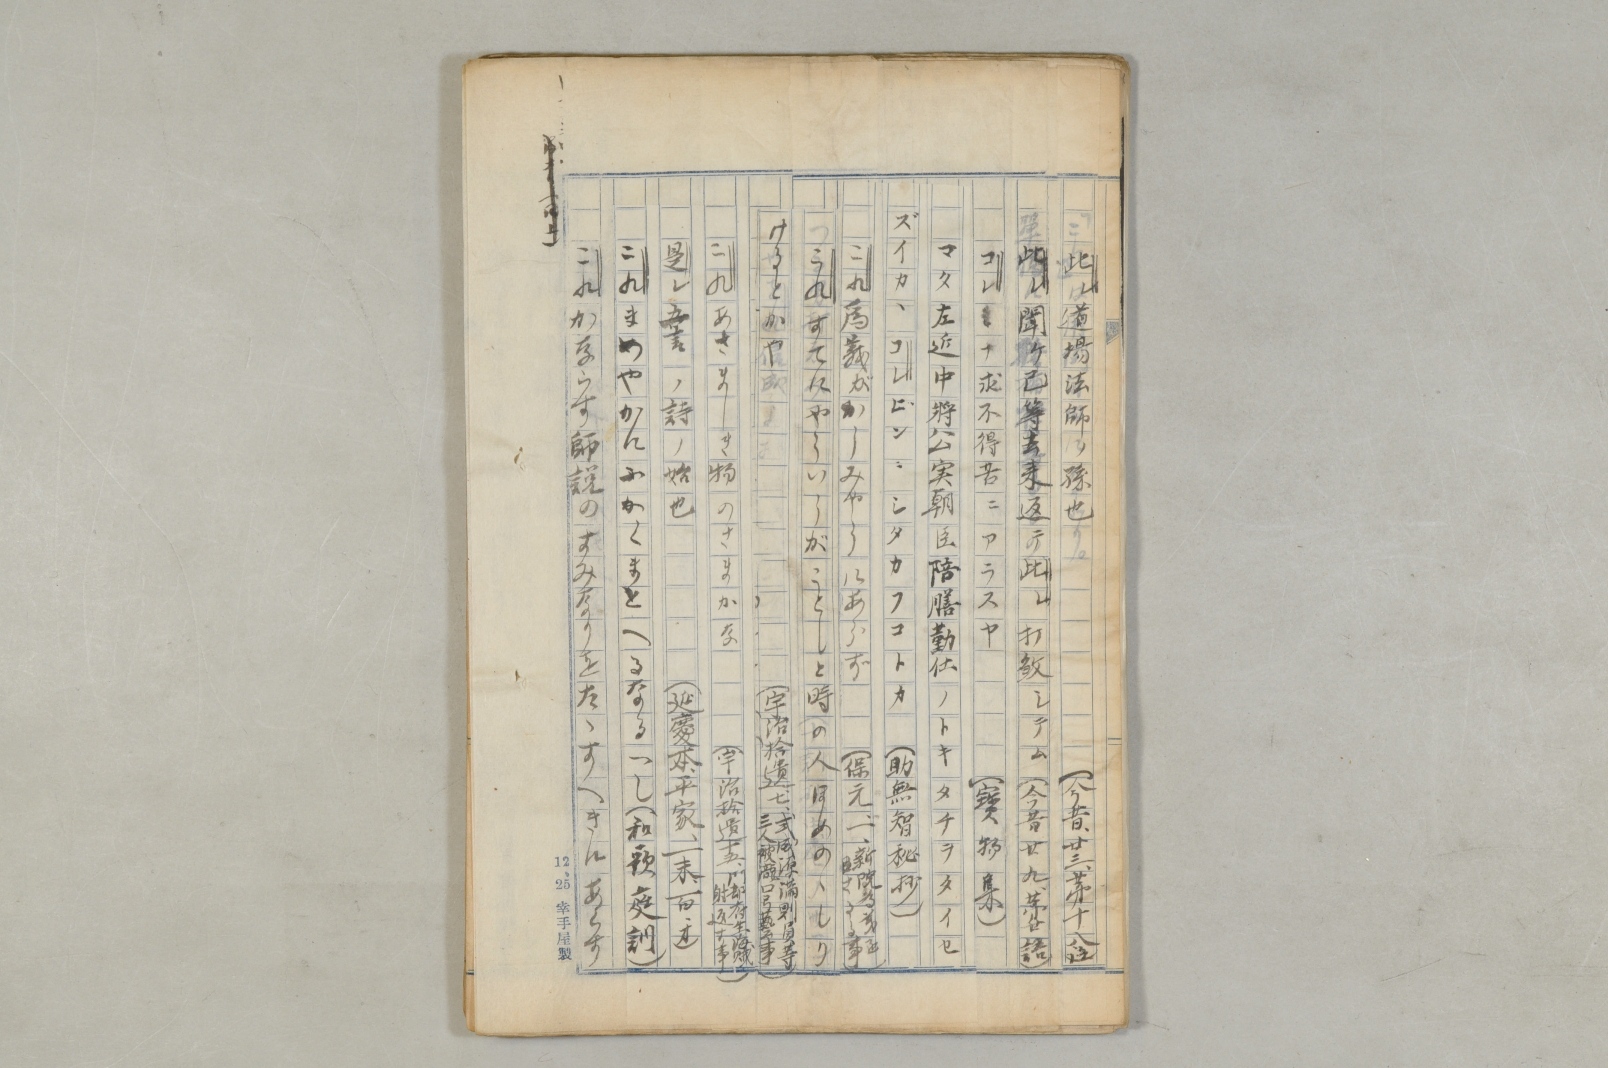 此レ道場法師ガ孫也
此レ聞ケ己等去来返テ此レ打殺シテム（今昔廿九、
コレ ナ求不得苦ニアラスヤ（寶物集）
マタ左近中将公実朝臣陪膳勤仕ノトキタチヲタイセ
ズイカヽコレビンニシタカフコトカ（助無智秘抄）
これ為義がかしみやうにあらず（保元一、新院為義
これすてにやうゆうがことしと時の人ほめのゝしり
けるとかや（宇治拾遺七、式成源満則員等三人被召瀧口弓藝事）
これあさましき物のさまかな（宇治拾遺十五、門部府生海賊射返す事）
是レ五言ノ詩ノ始也（延慶本、平家、一末、
これまめやかにふかくまとへるなるへし（和歌庭訓）
これかならす師説のすみなりをたゝすへきにあらす
12、25 幸手屋製